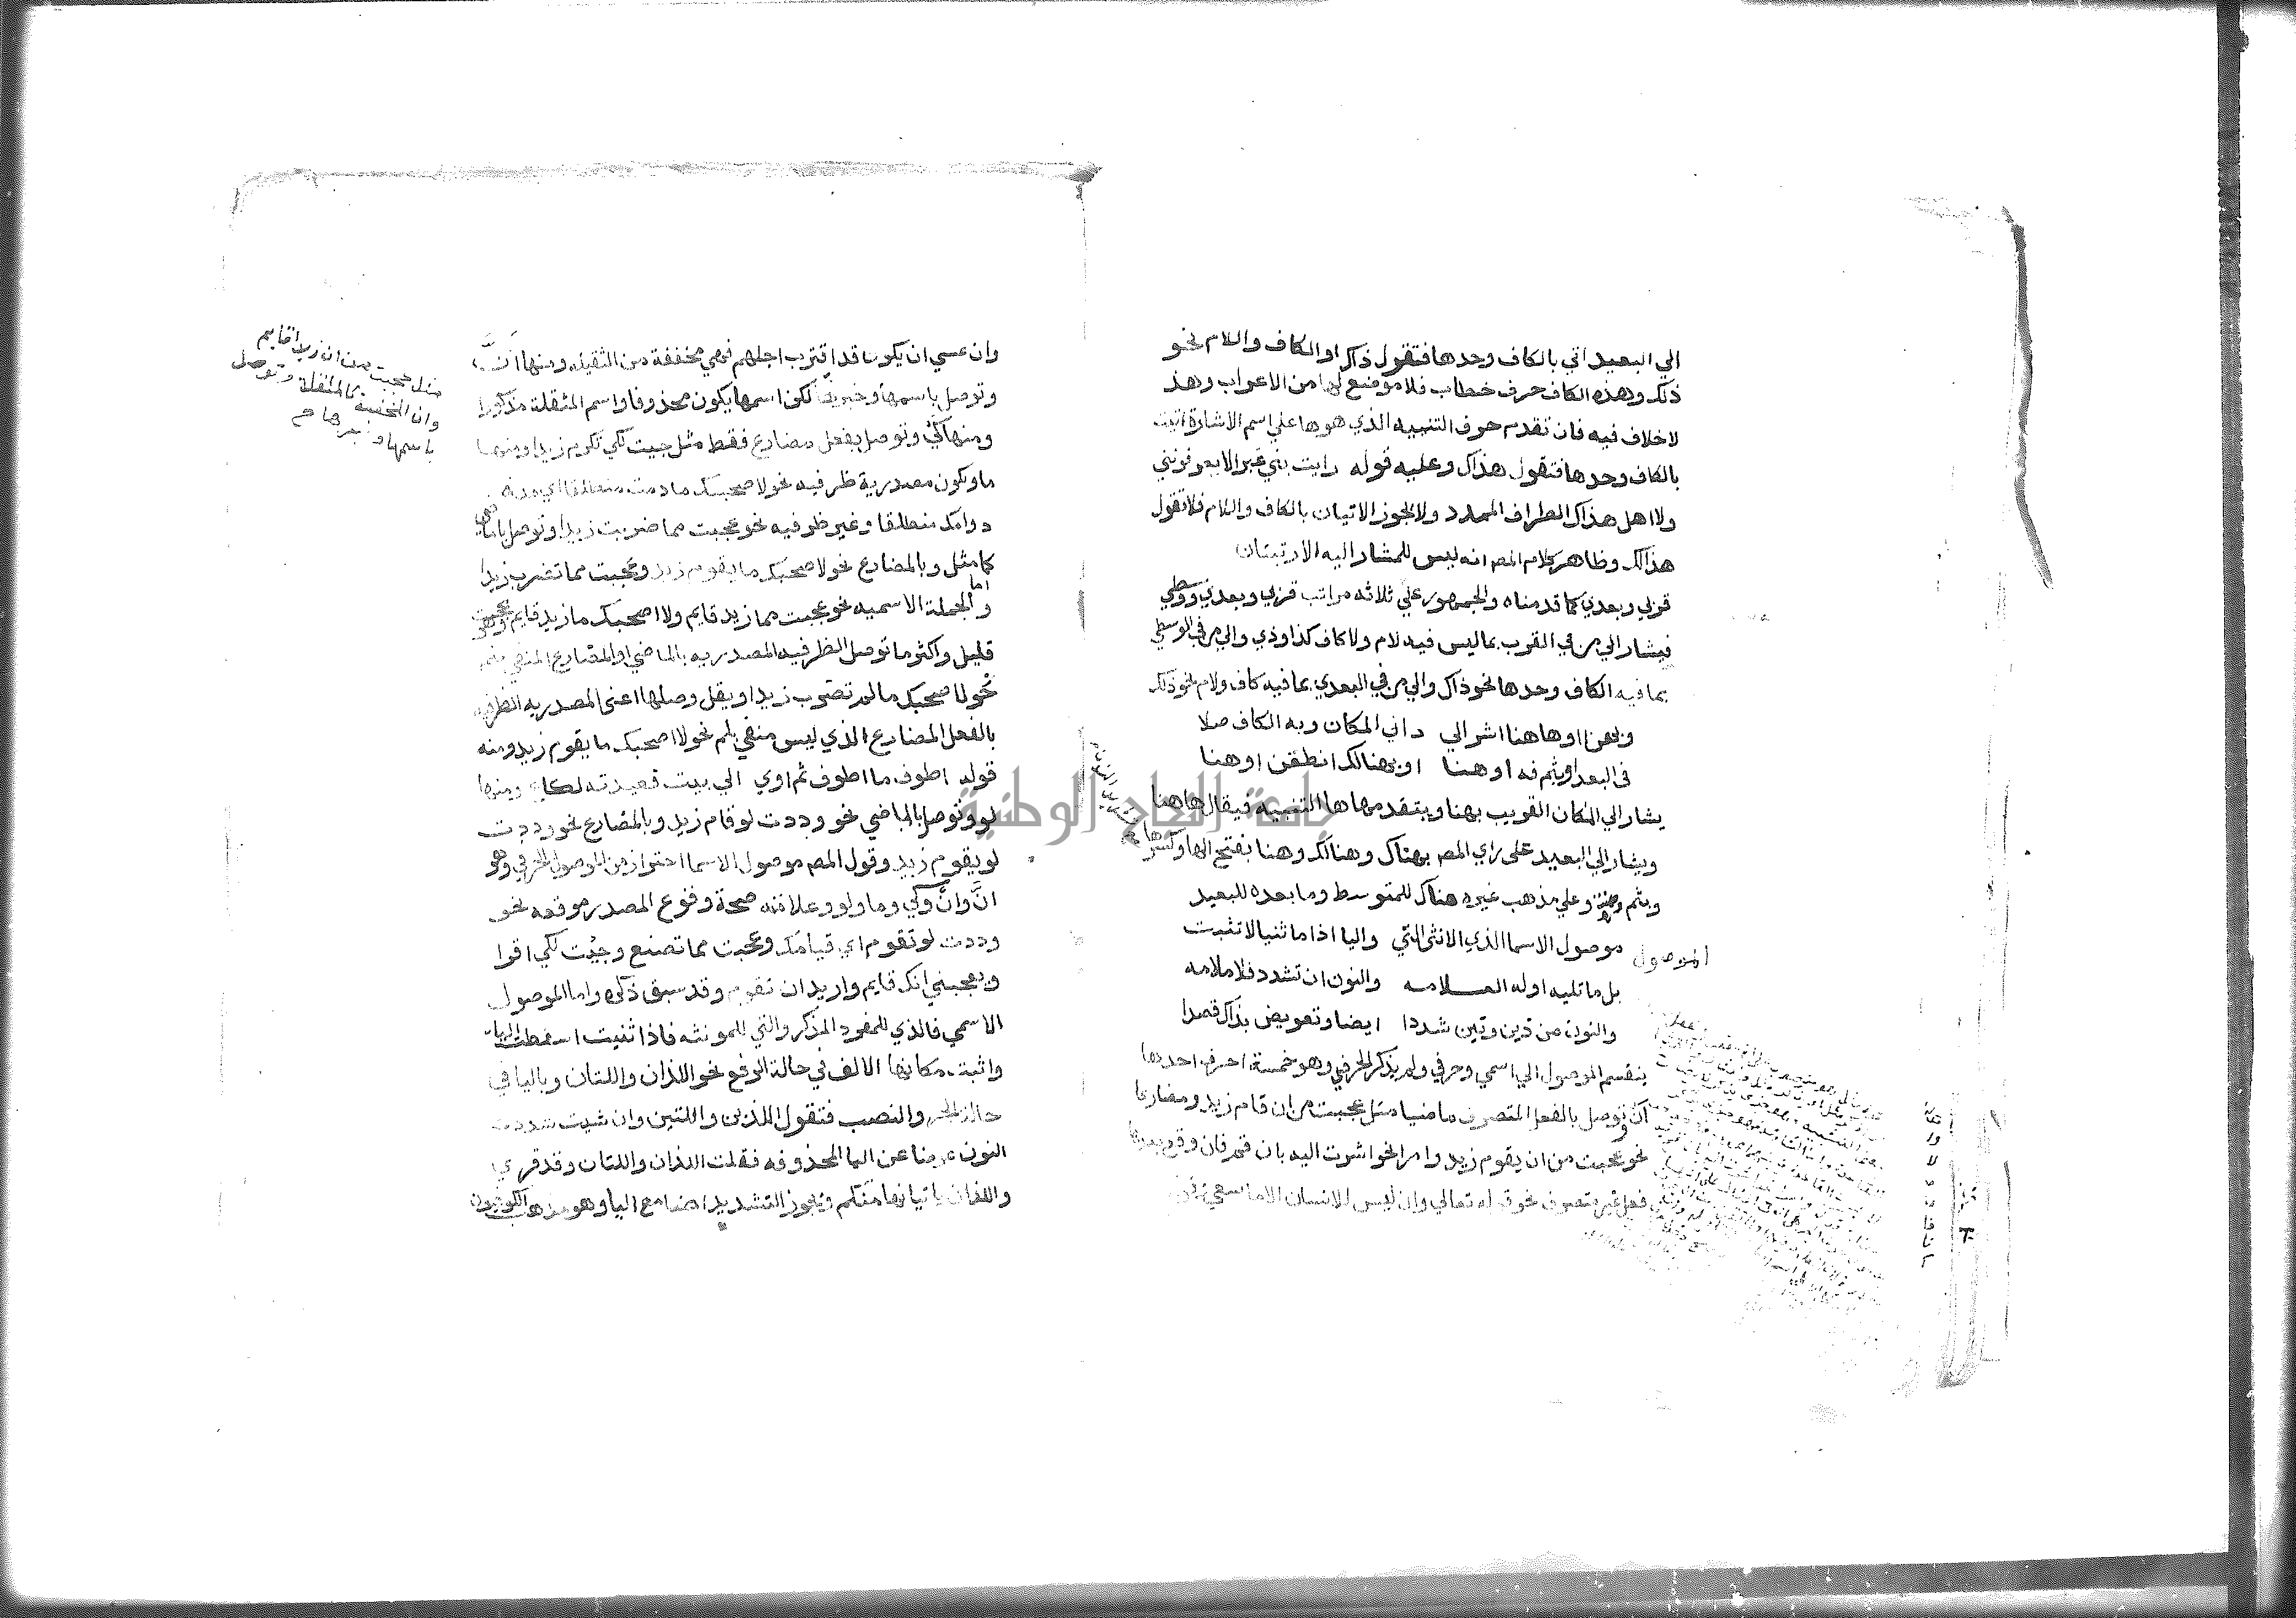 الي البعيد اتي بالكاف وحدها فتقول ذاك او الكاف واللام نحو
ذلك وهذه الكاف حرف خطاب فلا موضع لها من الاعراب وهذ
لاخلاف فيه فان تقدم حرف التنبيه الذي هو ها علي اسم الاشارة اتيت
بالكاف وحدها فتقول هذاك وعليه قوله رايت بني غبرا لا يعرفونني
ولا اهل هذاك الطراف الممدد ولا يجوز الاتيان بالكاف واللام فلا تقول
هذالك وظاهر كلام المص انه ليس للمشار اليه الا رتبتان
قربي وبعدي كما قدمناه والجمهور علي ثلاثه مراتب قربي وبعدي ووسطي
فيشار الي من في القرب بما ليس فيه لام ولا كاف كذا وذي والي من في الوسطي
بما فيه الكاف وحدها نحو ذاك والي من في البعدي بما فيه كاف ولام نحو ذلك
وبهنا او هاهنا اشر الي داني المكان وبه الكاف صلا
في البعد او بثم فه او هنا او بهنالك انطقن او هنا
يشار الي المكان القريب بهنا ويتقدمها ها التنبيه فيقال هاهنا
ويشار الي البعيد علي راي المص بهناك وهنالك وهنا بفتح الها وكسرها
وبثم وهنت وعلي مذهب غيره هناك للمتوسط وما بعده للبعيد
الموصول موصول الاسما الذي الانثي التي واليا اذا ما ثنيا لا تثبت
بل ما تليه اوله العلامه والنون ان تشدد فلا ملامه
والنون من ذين وتين شددا ايضا وتعويض بذاك قصدا
ينقسم الموصول الي اسمي وحرفي ولم يذكر الحرفي وهو خمسة احرف احدها
ان وتوصل بالفعل المتصرف ماضيا مثل عجبت من ان قام زيد ومضارعا
نحو عجبت من ان يقوم زيد وامرا نحو اشرت اليه بان قم فان وقع بعدها
فعل غير متصرف نحو قوله تعالي وان ليس للانسان الا ما سعي
وان عسي ان يكون قد اقترب اجلهم فهي مخففة من الثقيله ومنها انّ
وتوصل باسمها وخبرها لكن اسمها يكون محذوفا واسم المثقلة مذكورا
ومنها كي وتوصل بفعل مضارع فقط مثل جيت لكي تكرم زيدا ومنها
ما وتكون مصدرية ظرفيه نحو لا اصحبك ما دمت منطلقا اي مده
دوامك منطلقا وغير ظرفيه نحو عجبت مما ضربت زيدا وتوصل بالماضي
كما مثل وبالمضارع نحو لا اصحبك ما يقوم زيد وعجبت مما تضرب زيدا
والجملة الاسميه نحو عجبت مما زيد قايم ولا اصحبك ما زيد قايم وهو
قليل واكثر ما توصل الظرفيه المصدريه بالماضي او المضارع المنفي بلم
نحو لا اصحبك ما لم تضرب زيدا ويقل وصلها اعني المصدريه الظرفيه
بالفعل المضارع الذي ليس منفي بلم نحو لا اصحبك ما يقوم زيد ومنه
قوله اطوف ما اطوف ثم اوي الي بيت قعيدته لكاع ومنها
لو وتوصل بالماضي نحو وددت لو قام زيد وبالمضارع نحو وددت
لو يقوم زيد وقول المص موصول الاسما احتراز من الموصول الحرفي وهو
انّ وان وكي وما ولو وعلامته صحة وقوع المصدر موقعه نحو
وددت لو تقوم اي قيامك وعجبت مما تصنع وجيت لكي اقرا
ويعجبني انك قايم واريد ان تقوم وقد سبق ذكره واما الموصول
الاسمي فالذي للمفرد المذكر والتي للمونثه فاذا ثنيت اسقطت اليا
واثبت مكانها الالف في حالة الرفع نحو اللذان واللتان وباليا في
حالة الجر والنصب فتقول اللذين واللتين وان شيت شددت
النون عوضا عن اليا المحذوفه فقلت اللذان واللتان وقد قري
واللذان ياتيانها منكم ويجوز التشديد ايضا مع اليا وهو مذهب الكوفيون
مثل عجبت من ان زيدا قايم
وان المخففة كالمثقلة وتوصل
باسمها وخبرها صح
جامعة النجاح الوطنية